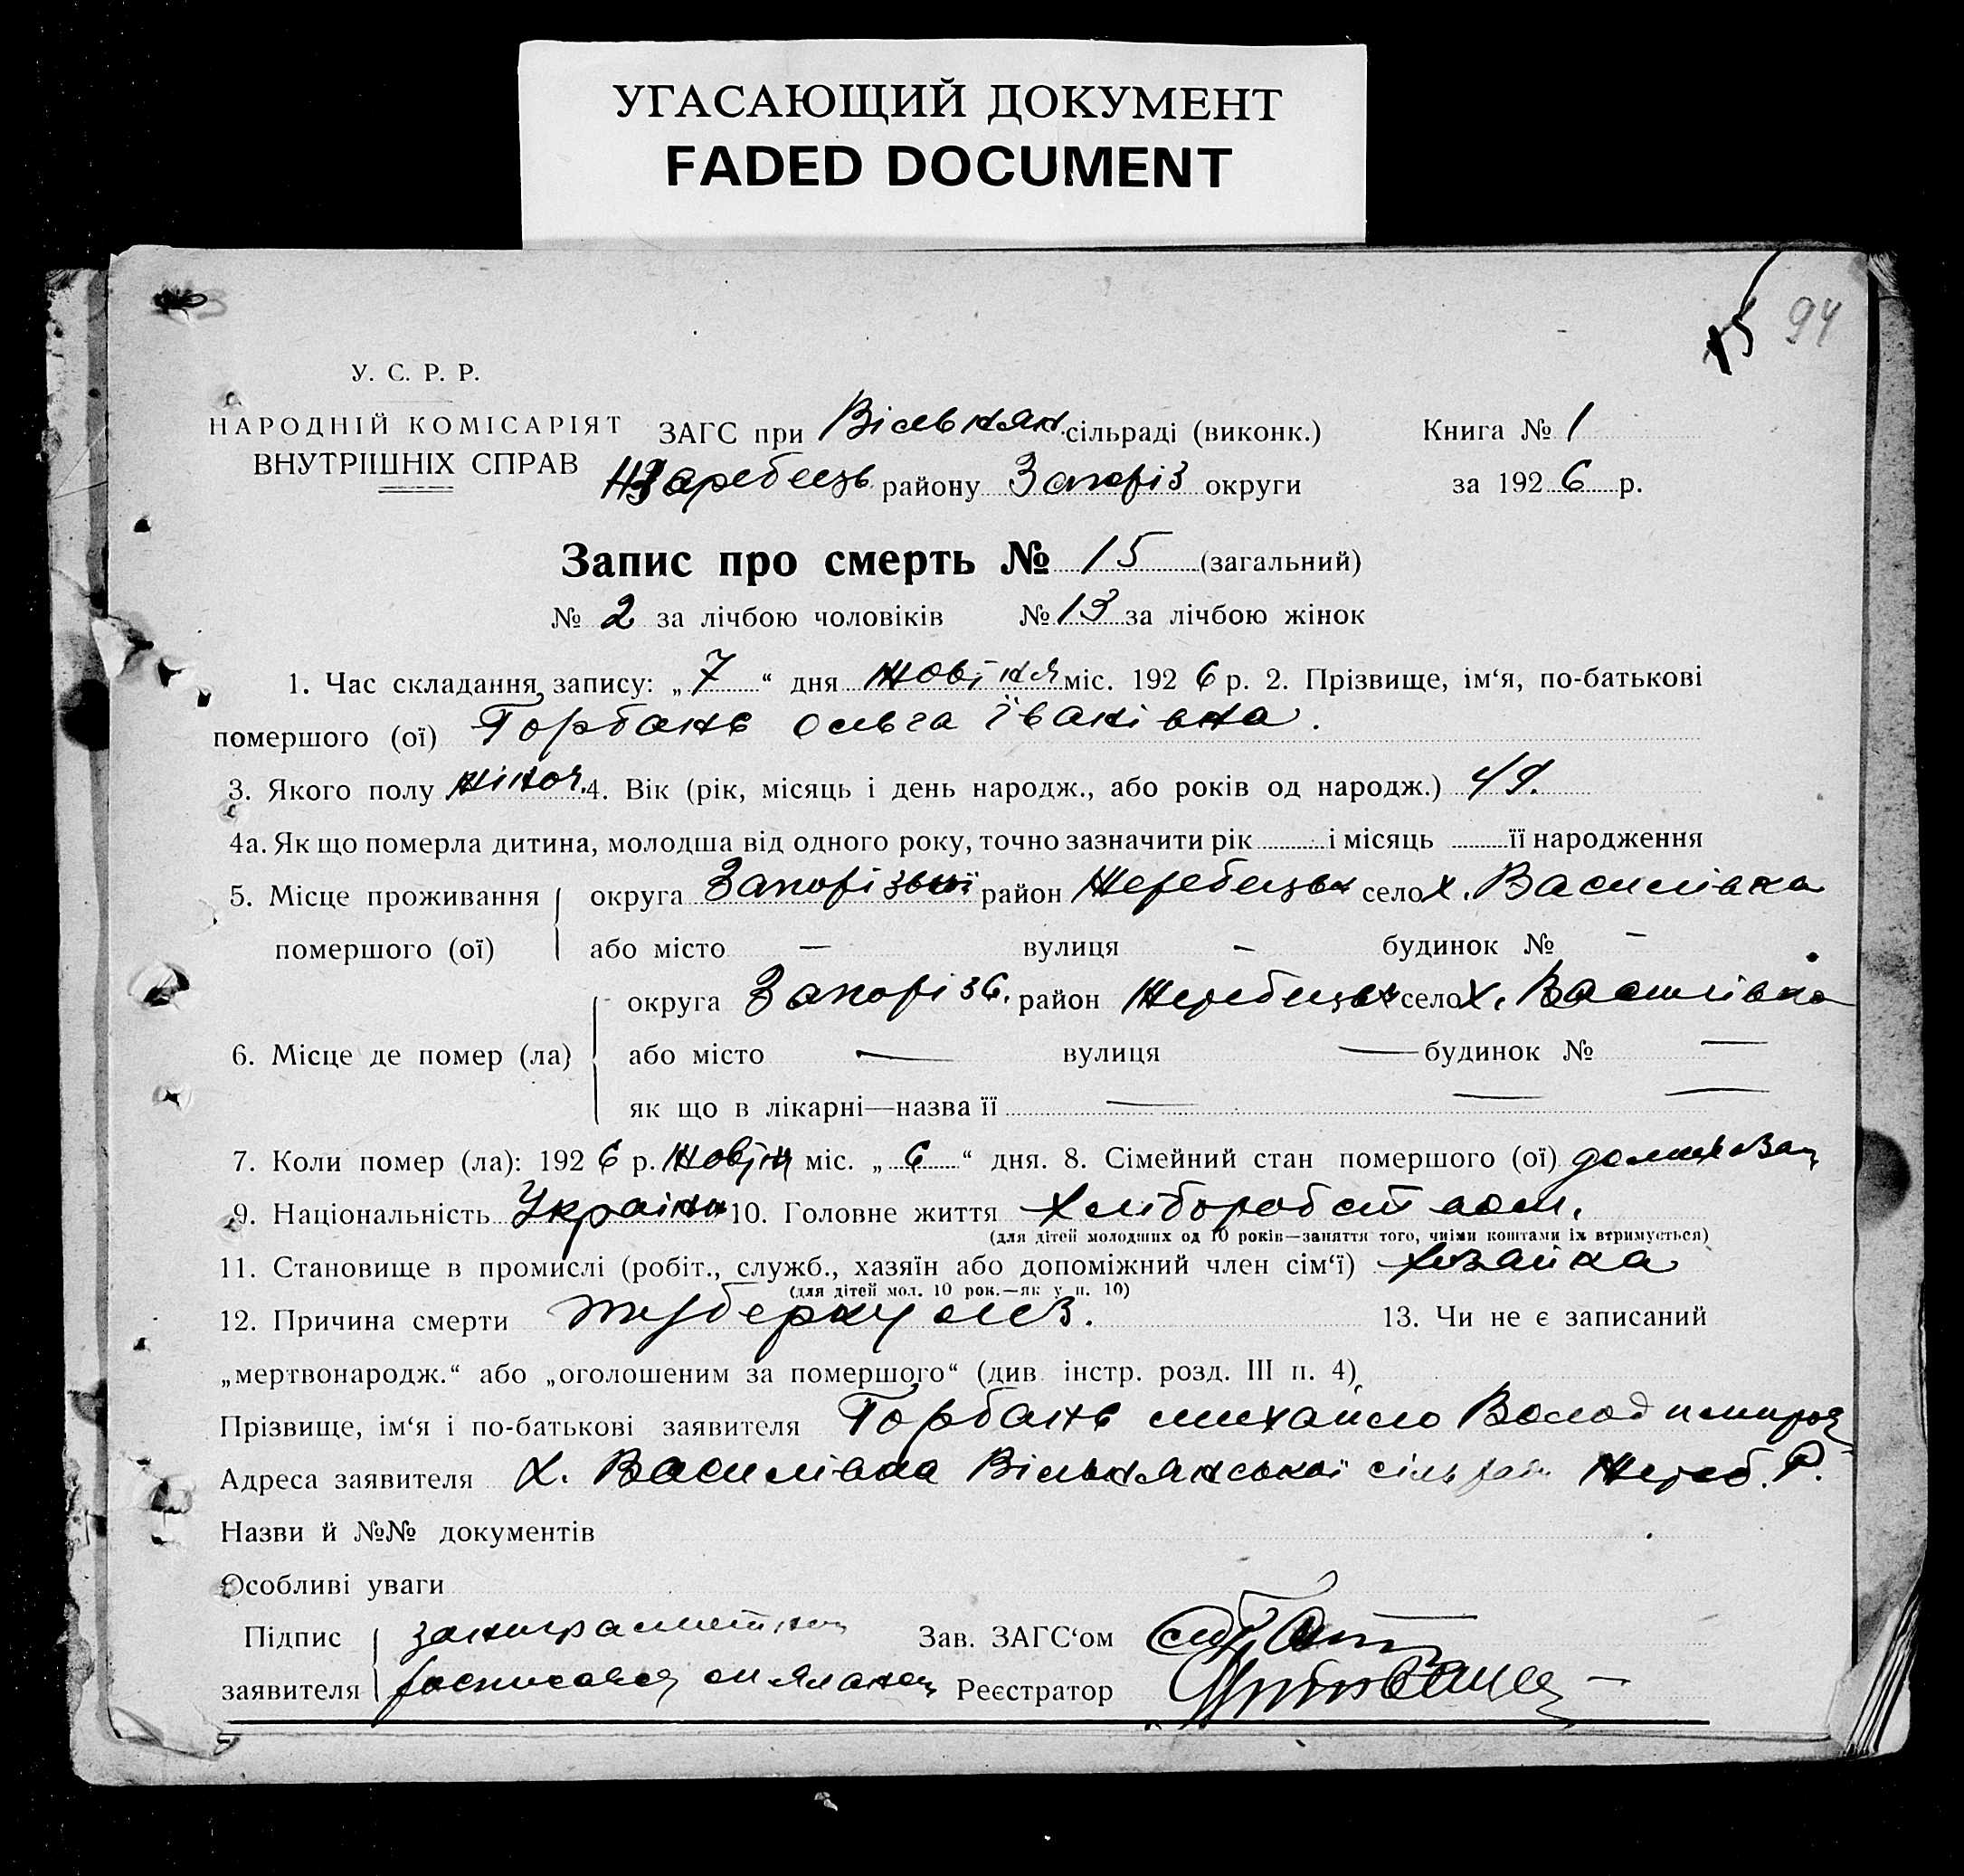 УГАСАЮЩИЙ ДОКУМЕНТ
FADED DOCUMENT
15 94
У. С. Р. Р.
НАРОДНІЙ КОМІСАРІЯТ
ВНУТРІШНІХ СПРАВ
ЗАГС при Вільнян. сільраді (виконк.)
Книга № 1
району Запоріз округи
за 1926 р.
Запис про смерть № 15 (загальний)
№ 2 за лічбою чоловіків № 13 за лічбою жінок
1. Час складання запису: „7“ дня міс. 1926 р. 2. Прізвище, ім‘я, по-батькові
помершого (ої) Горбань Ольга Іванівна.
3. Якого полу жіноч. 4. Вік (рік, місяць і день народж., або років од народж.) 49.
4а. Як що померла дитина, молодша від одного року, точно зазначити рік і місяць її народження
5. Місце проживання округа район Жеребецьк село х. Василівка
помершого (ої) або місто — вулиця - будинок № -
округа Запорізь. район Жеребецьк село х. Василівка
6. Місце де помер (ла) або місто — вулиця — будинок № —
як що в лікарні—назва її — — —
7. Коли помер (ла): 1926 р. міс. „6“ дня. 8. Сімейний стан помершого (ої)
9. Національність Україн 10. Головне життя
(для дітей молодших од 10 років—заняття того, чиїми коштами їх втримується)
11. Становище в промислі (робіт., служб., хазяїн або допоміжний член сім‘ї) хозайка
(для дітей мол. 10 рок.—як у п. 10)
12. Причина смерти туберкульоз. 13. Чи не є записаний
„мертвонародж.“ або „оголошеним за помершого“ (див. інстр. розд. III п. 4)
Прізвище, ім‘я і по-батькові заявителя Горбань Михайло
Адреса заявителя х. Василівка Вільнянської сільрад Жереб. Р.
Назви й №№ документів
Особливі уваги
Підпис Зав. ЗАГС‘ом
заявителя Реєстратор